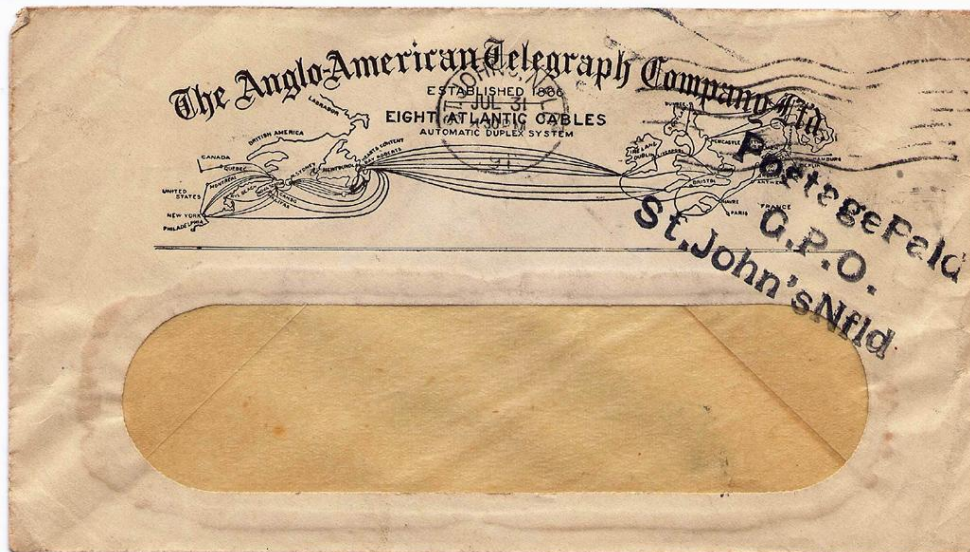 The Anglo-American Telegraph Company Ltd.
ESTABLISHED 1866
EIGHT ATLANTIC CABLES
AUTOMATIC DUPLEX SYSTEM
ST. JOHN'S, N
JUL 31
LABRADOR
BRITISH AMERICA
CANADA
QUEBEC
MONTREAL
UNITED
STATES
NEW YORK
PHILADELPHIA
HEARTS CONTENT
BAY ROBERTS
SYDNEY
DUBLIN
BRISTOL
HAVRE
PARIS
FRANCE
Postage Paid
G.P.O.
St. John's Nfld